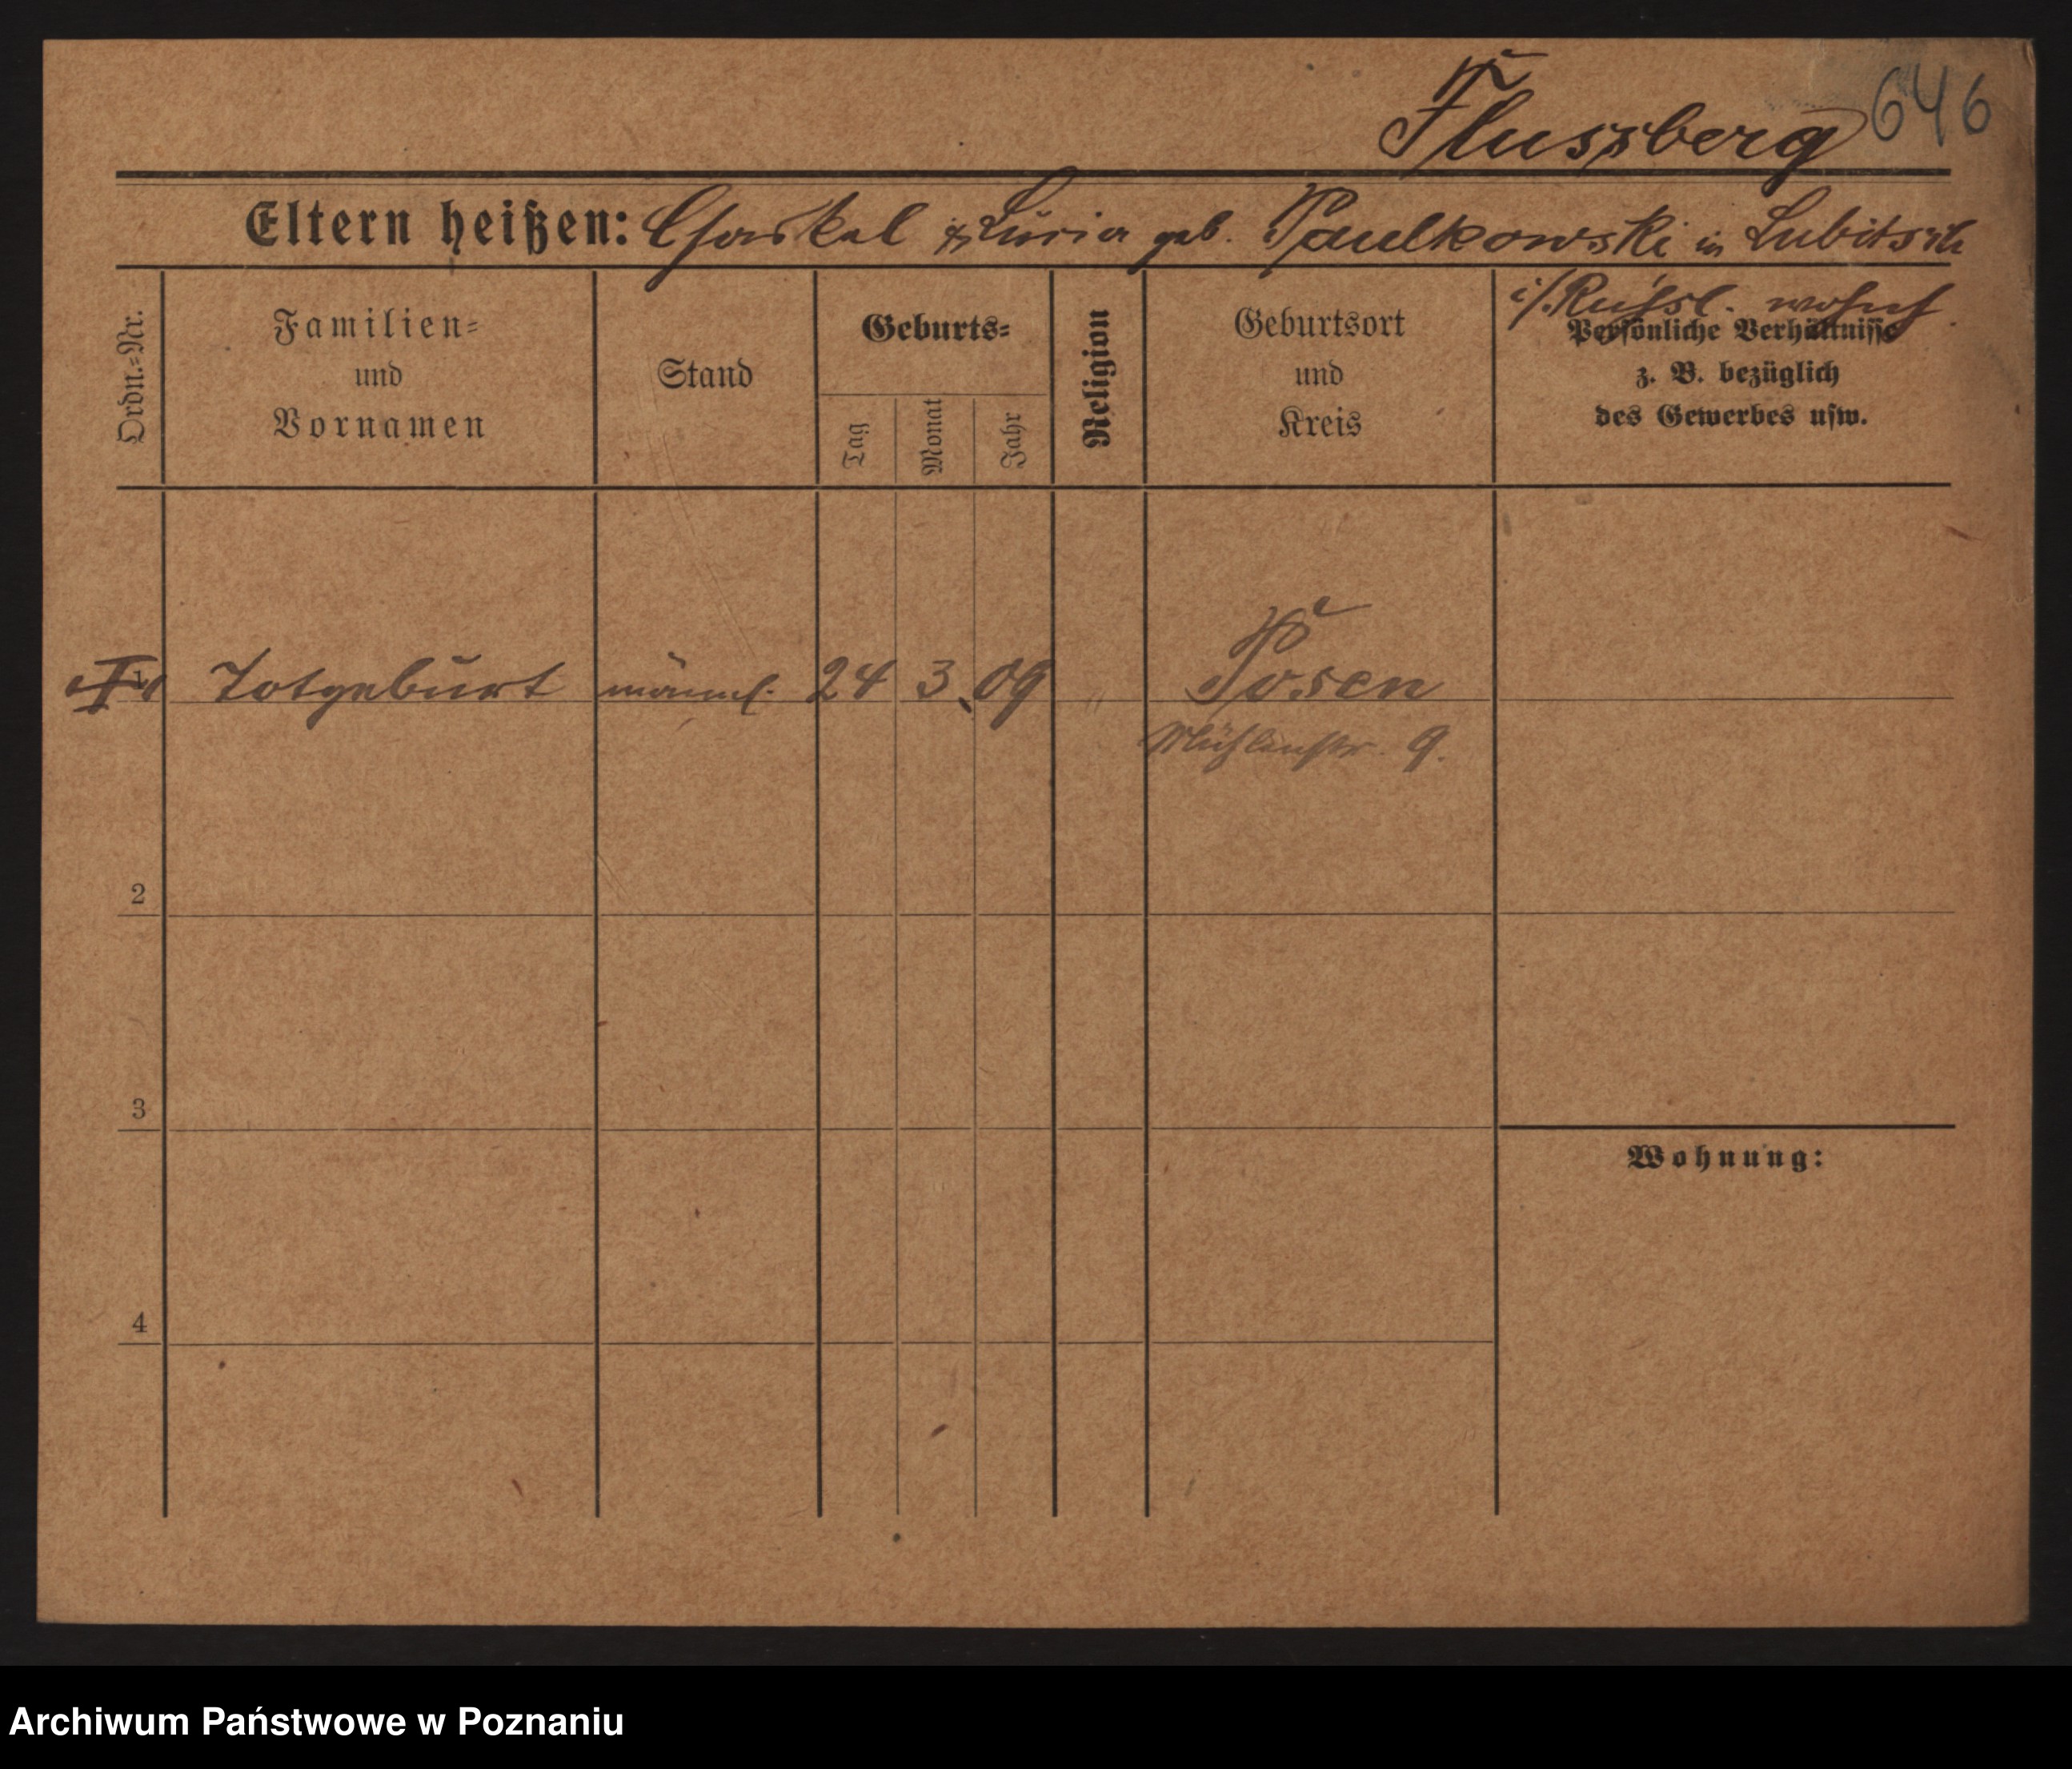 Flussberg 646
Eltern heißen: Chaskel & Luria geb. Paulkowski in Lubitsch
i/. Rußl. wohnh.
Ordn.=Nr.
Familien=
und
Vornamen
Stand
Geburts=
Tag
Monat
Jahr
Religion
Geburtsort
und
Kreis
Persönliche Verhältnisse
z. B. bezüglich
des Gewerbes usw.
1 Totgeburt männl. 24 3. 09 Posen
Mühlenstr. 9.
2
3
Wohnung:
4
Archiwum Państwowe w Poznaniu